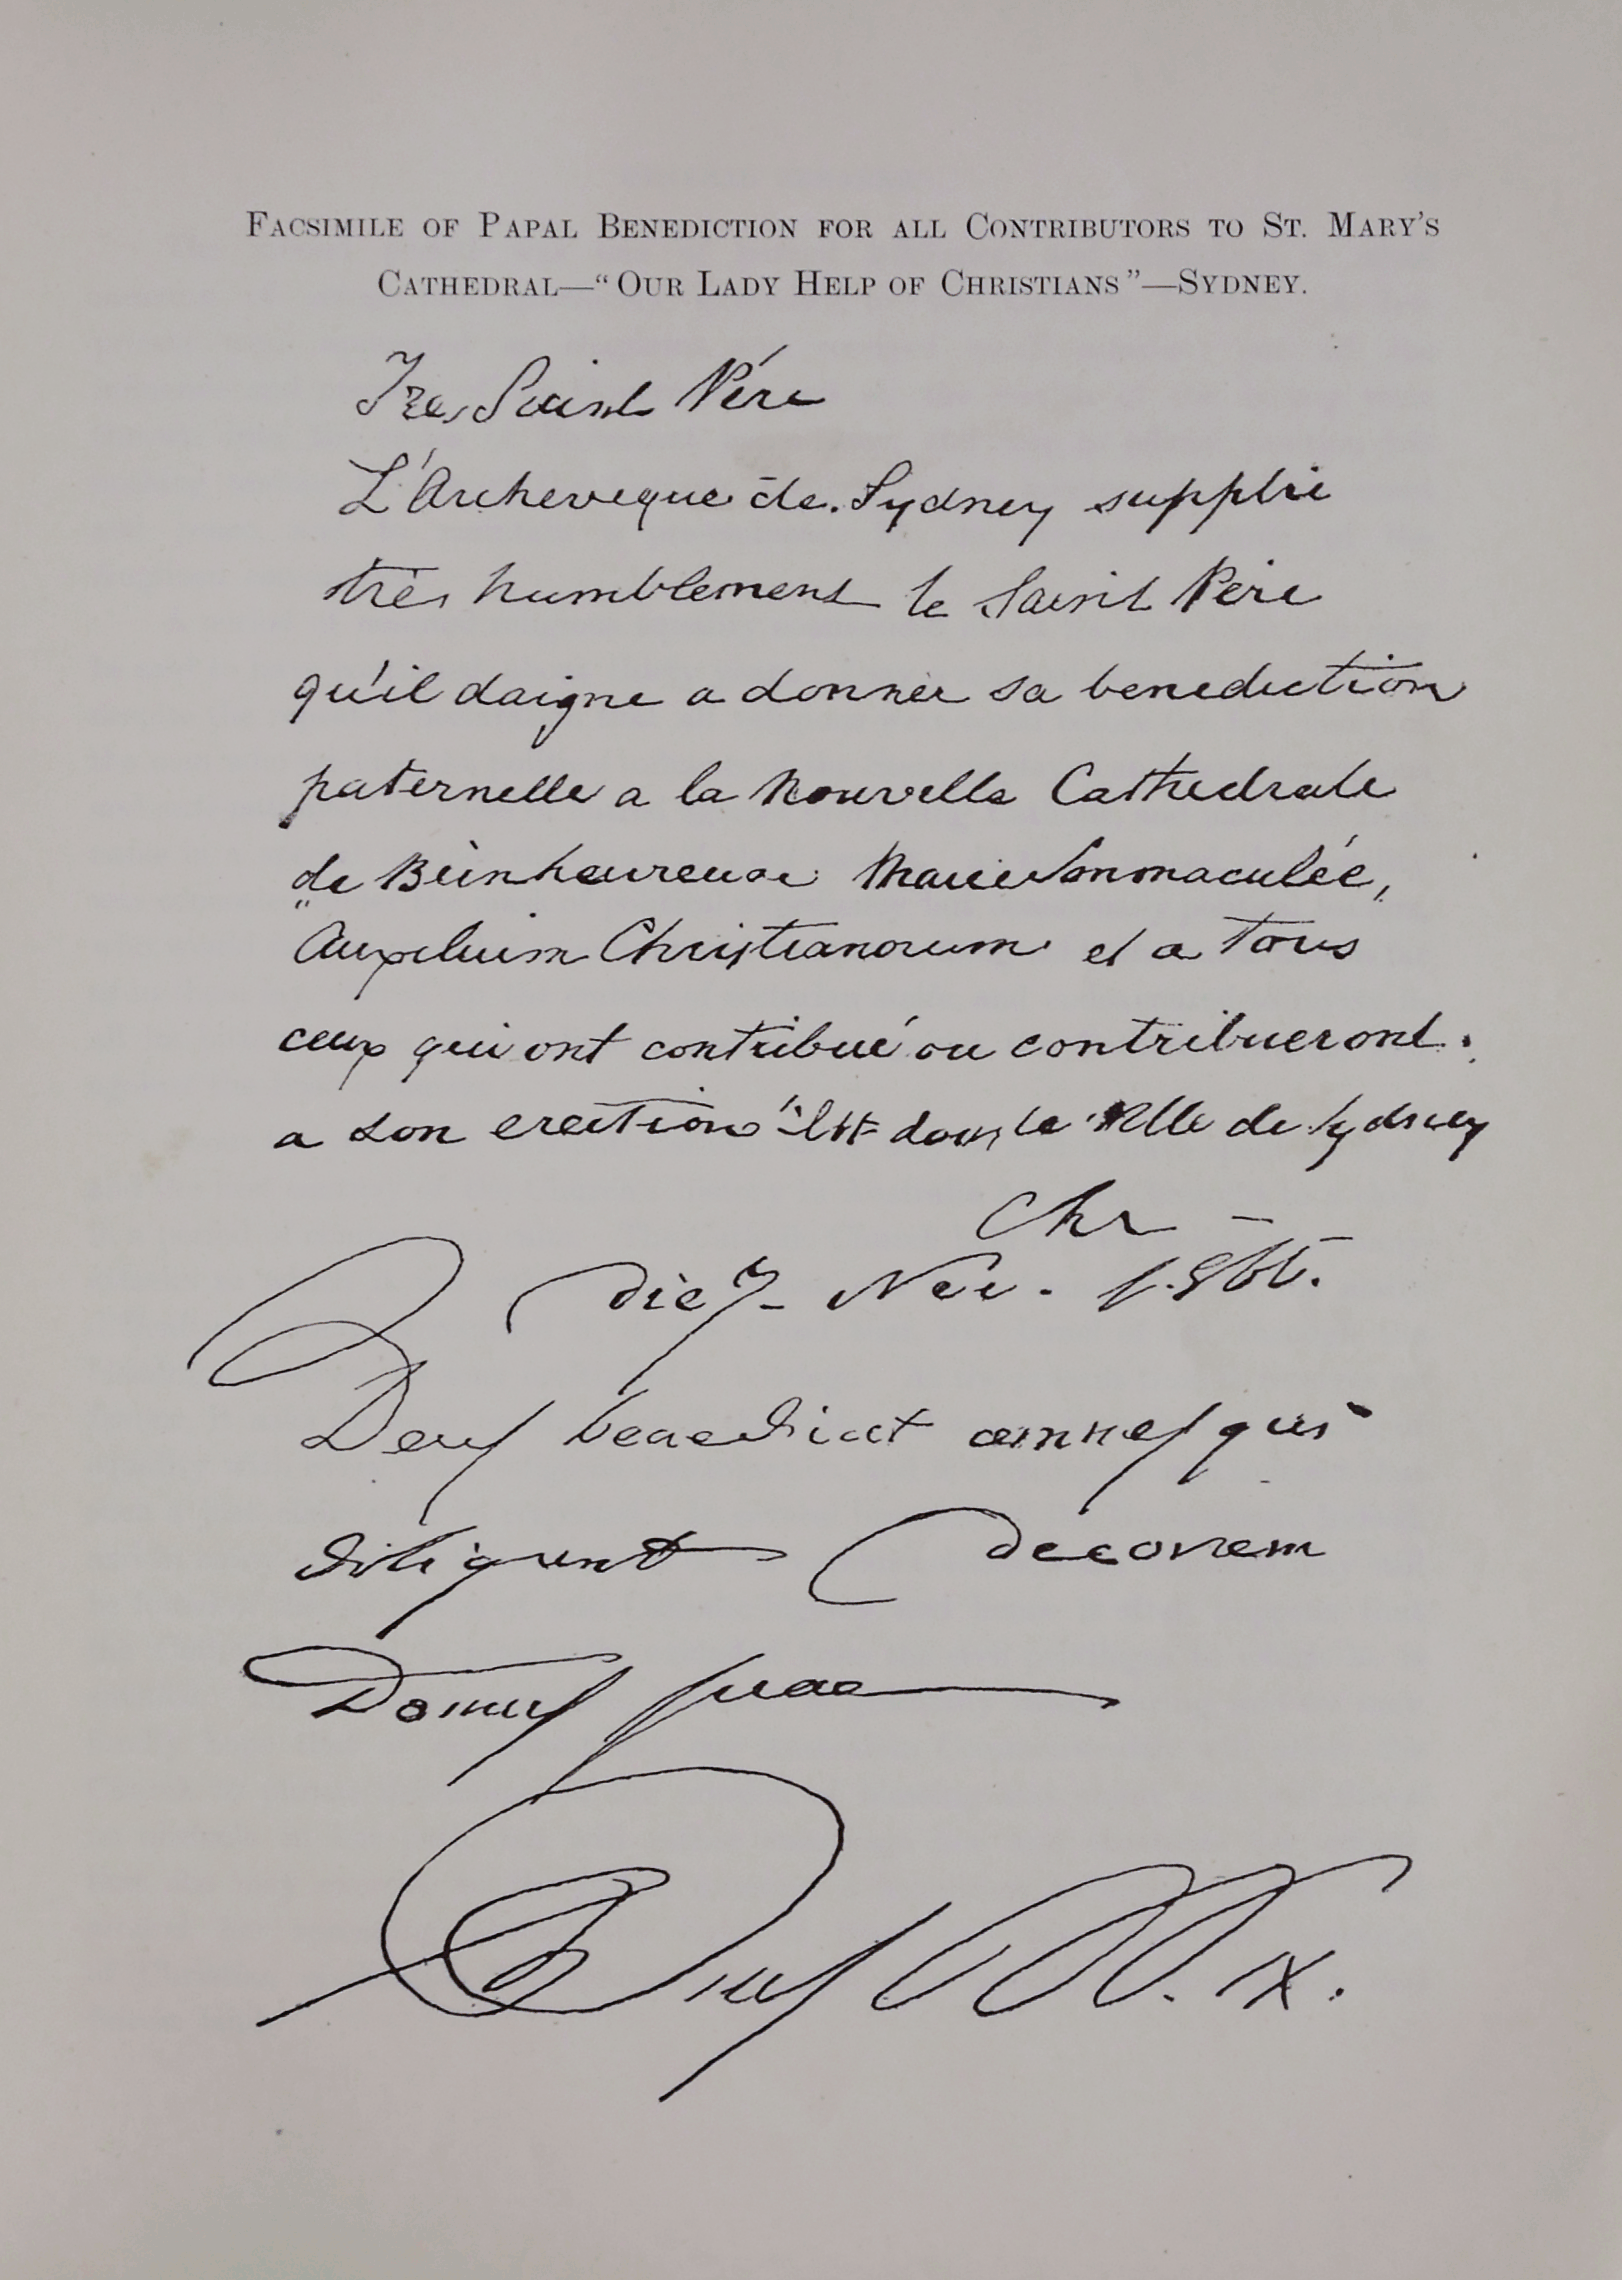 FACSIMILE OF PAPAL BENEDICTION FOR ALL CONTRIBUTORS TO ST. MARY'S
CATHEDRAL—“OUR LADY HELP OF CHRISTIANS”—SYDNEY.
Tres Saint Pére
L'Archeveque de Sydney supplie
très humblement le Saint Père
qu'il daigne a donner sa benediction
paternelle a la Nouvelle Cathedrale
de Bienheureuse Marie Immaculée,
"Auxilium Christianorum et a tous
ceux qui ont contribué ou contribueront
a son erection dans la Ville de Sydney
Die 7 Nov. 1866.
Deus benedicat omnes qui
diligunt decorem
Domus suae
Pius PP. IX.